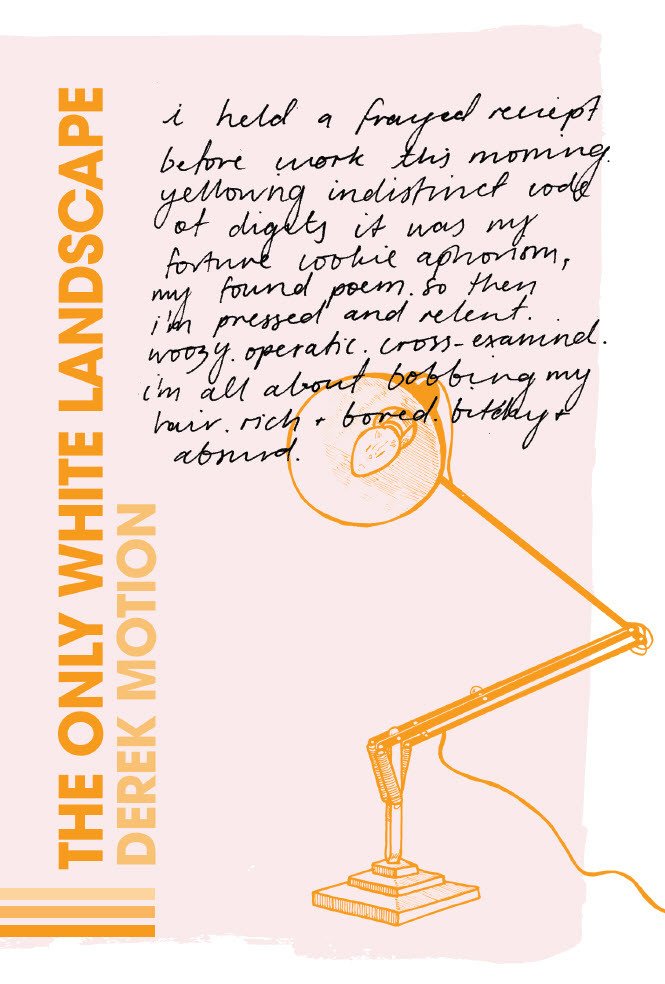 THE ONLY WHITE LANDSCAPE
DEREK MOTION
i held a frayed reciept
before work this morning.
yellowng indistinct code
of digits it was my
fortune cookie aphorism,
my found poem. so then
i'm pressed and relent.
woozy. operatic. cross-examined.
i'm all about bobbing my
hair. rich + bored. bitchy +
absurd.